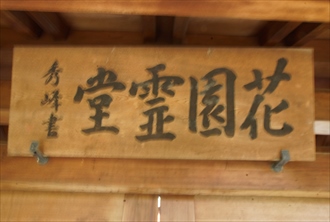 花園霊堂
秀峰書